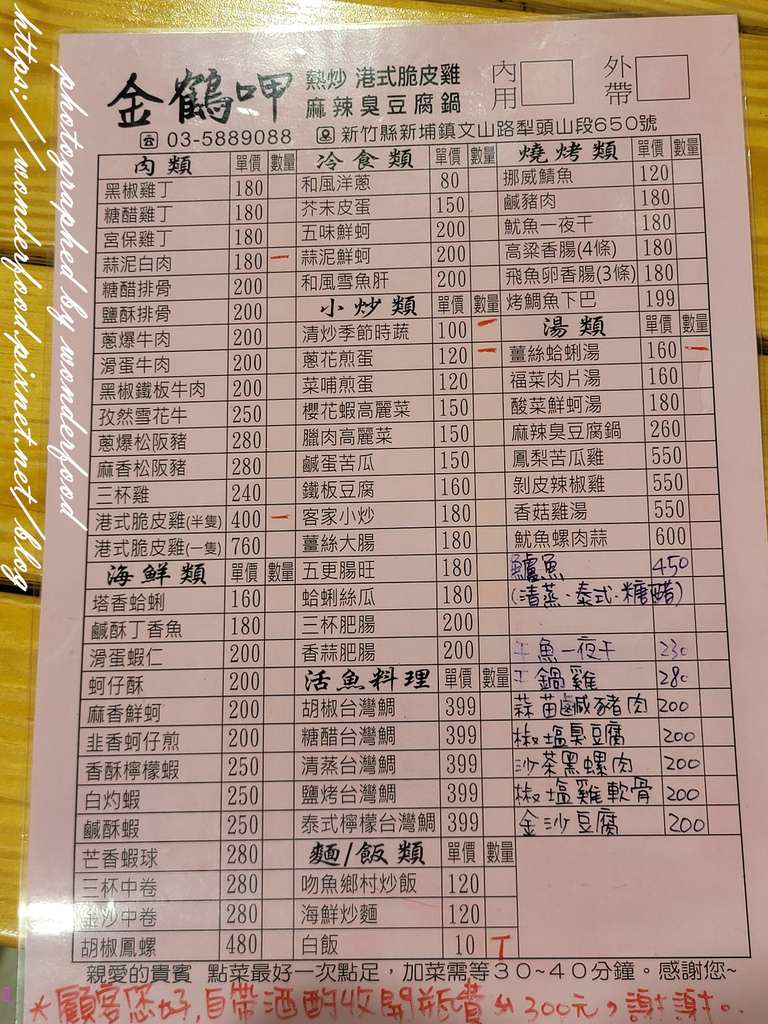 金鶴呷
熱炒 港式脆皮雞
麻辣臭豆腐鍋
內用
外帶
03-5889088 新竹縣新埔鎮文山路犁頭山段650號
肉類 單價 數量
黑椒雞丁 180
糖醋雞丁 180
宮保雞丁 180
蒜泥白肉 180 一
糖醋排骨 200
鹽酥排骨 200
蔥爆牛肉 200
滑蛋牛肉 200
黑椒鐵板牛肉 200
孜然雪花牛 250
蔥爆松阪豬 280
麻香松阪豬 280
三杯雞 240
港式脆皮雞(半隻) 400 一
港式脆皮雞(一隻) 760
海鮮類 單價 數量
塔香蛤蜊 160
鹹酥丁香魚 180
滑蛋蝦仁 200
蚵仔酥 200
麻香鮮蚵 200
韭香蚵仔煎 200
香酥檸檬蝦 250
白灼蝦 250
鹹酥蝦 250
芒香蝦球 280
三杯中卷 280
金沙中卷 280
胡椒鳳螺 480
冷食類 單價 數量
和風洋蔥 80
芥末皮蛋 150
五味鮮蚵 200
蒜泥鮮蚵 200
和風雪魚肝 200
小炒類 單價 數量
清炒季節時蔬 100 一
蔥花煎蛋 120 一
菜哺煎蛋 120
櫻花蝦高麗菜 150
臘肉高麗菜 150
鹹蛋苦瓜 150
鐵板豆腐 160
客家小炒 180
薑絲大腸 180
五更腸旺 180
蛤蜊絲瓜 180
三杯肥腸 200
香蒜肥腸 200
活魚料理 單價 數量
胡椒台灣鯛 399
糖醋台灣鯛 399
清蒸台灣鯛 399
鹽烤台灣鯛 399
泰式檸檬台灣鯛 399
麵/飯類 單價 數量
吻魚鄉村炒飯 120
海鮮炒麵 120
白飯 10 T
燒烤類 單價 數量
挪威鯖魚 120
鹹豬肉 180
魷魚一夜干 180
高粱香腸(4條) 180
飛魚卵香腸(3條) 180
烤鯛魚下巴 199
湯類 單價 數量
薑絲蛤蜊湯 160 一
福菜肉片湯 160
酸菜鮮蚵湯 180
麻辣臭豆腐鍋 260
鳳梨苦瓜雞 550
剝皮辣椒雞 550
香菇雞湯 550
魷魚螺肉蒜 600
鱸魚 450
(清蒸·泰式·糖醋)
午魚一夜干 230
干鍋雞 280
蒜苗鹹豬肉 200
椒塩臭豆腐 200
沙茶黑螺肉 200
椒塩雞軟骨 200
金沙豆腐 200
親愛的貴賓 點菜最好一次點足，加菜需等30~40分鐘。感謝您~
*顧客您好,自帶酒酌收開瓶費$300元,謝謝。
photographed by wonderfood
https://wonderfood.pixnet.net/blog